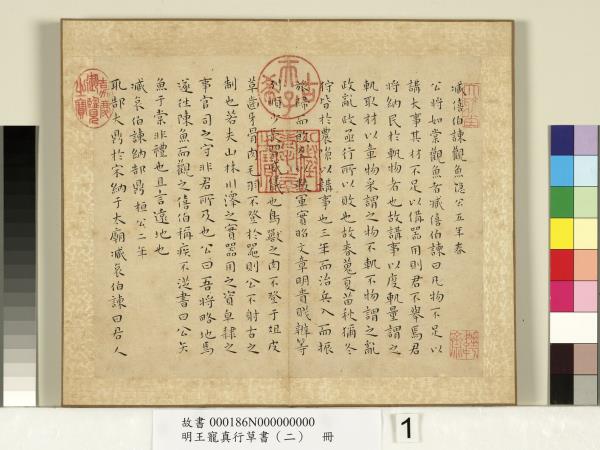 臧僖伯諫觀魚 隱公五年春
公將如棠觀魚者臧僖伯諫曰凡物不足以
講大事其材不足以備器用則君不舉焉君
將納民於軌物者也故講事以度軌量謂之
軌取材以章物采謂之物不軌不物謂之亂
政亂政亟行所以敗也故春蒐夏苗秋獮冬
狩皆於農隙以講事也三年而治兵入而振
旅歸而飲至以數軍實昭文章明貴賤辨等
列順少長習威儀也鳥獸之肉不登于俎皮
革齒牙骨角毛羽不登於器則公不射古之
制也若夫山林川澤之實器用之資皁隸之
事官司之守非君所及也公曰吾將略地焉
遂往陳魚而觀之僖伯稱疾不從書曰公矢
魚于棠非禮也且言遠地也
臧哀伯諫納郜鼎 桓公二年
取郜大鼎於宋納于太廟臧哀伯諫曰君人
嘉慶御覽之寶
故書 000186N000000000
明王寵真行草書（二） 冊
1